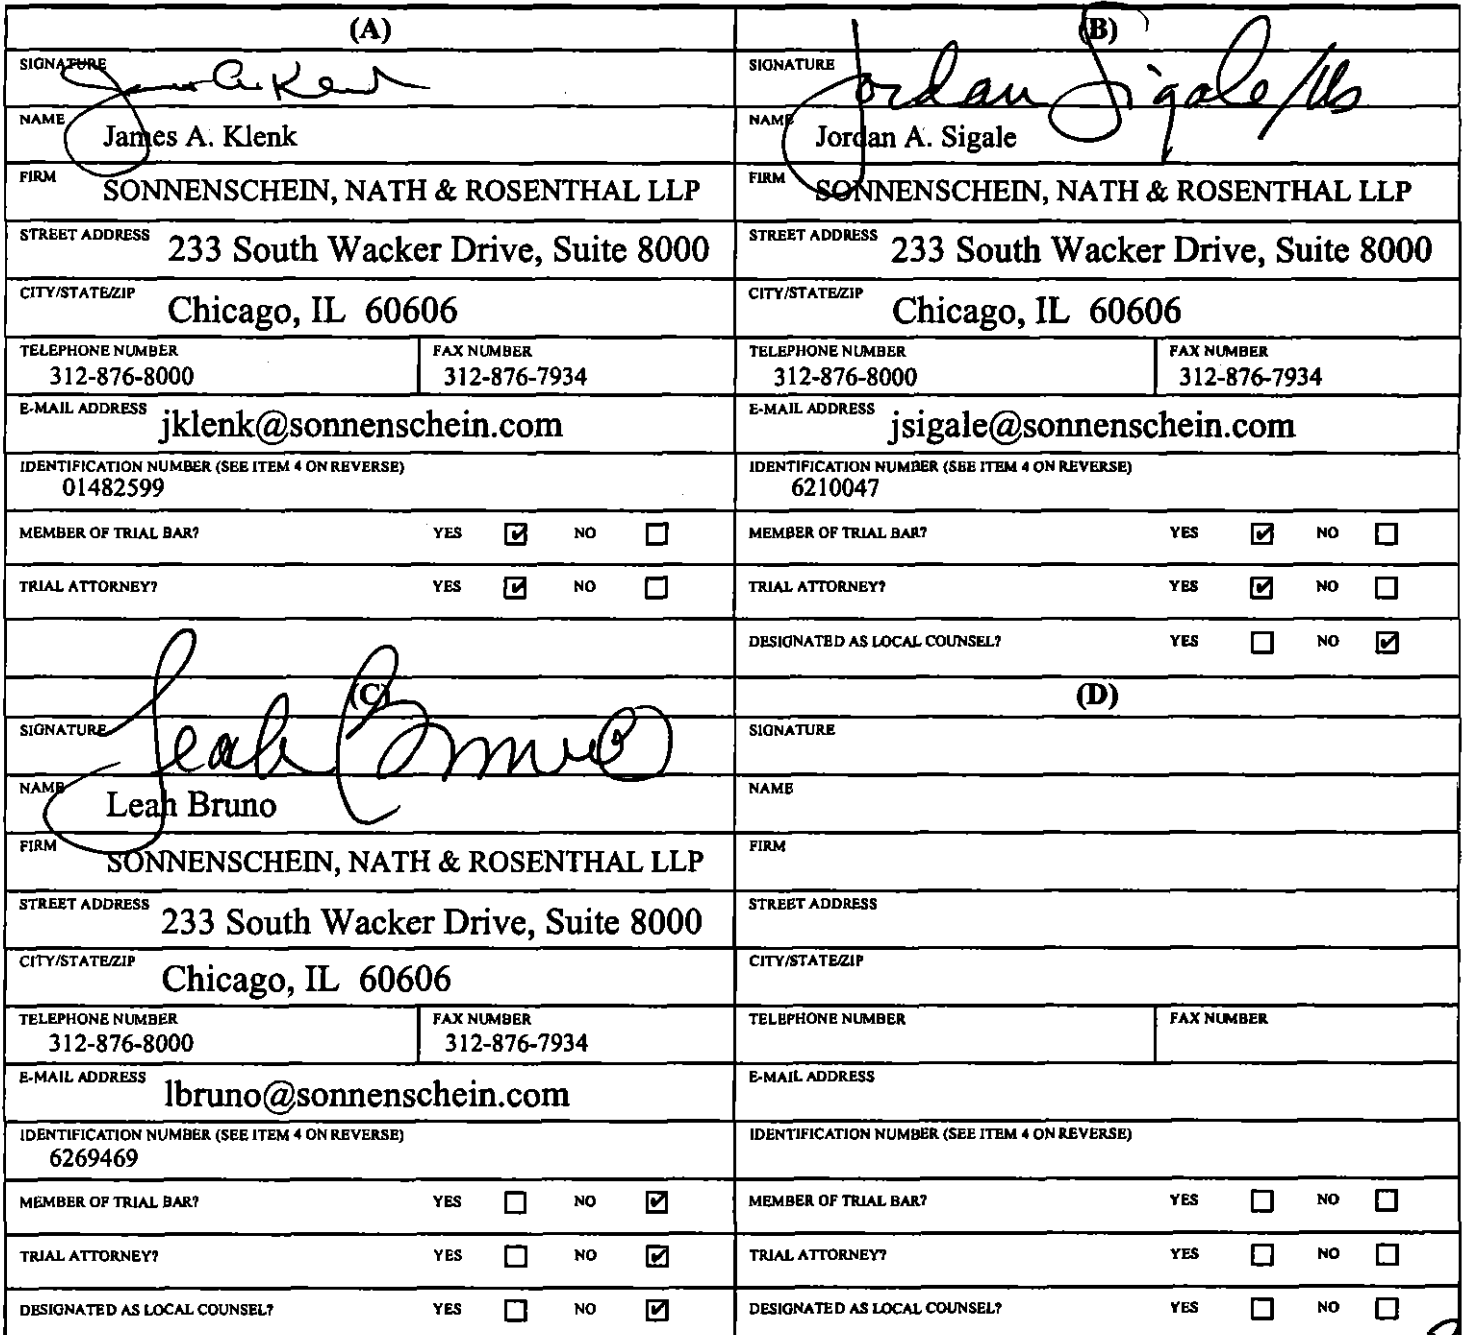 (A)
SIGNATURE James A. Klenk
NAME James A. Klenk
FIRM SONNENSCHEIN, NATH & ROSENTHAL LLP
STREET ADDRESS 233 South Wacker Drive, Suite 8000
CITY/STATE/ZIP Chicago, IL 60606
TELEPHONE NUMBER FAX NUMBER
312-876-8000 312-876-7934
E-MAIL ADDRESS jklenk@sonnenschein.com
IDENTIFICATION NUMBER (SEE ITEM 4 ON REVERSE)
01482599
MEMBER OF TRIAL BAR? YES ☑ NO ☐
TRIAL ATTORNEY? YES ☑ NO ☐
(B)
SIGNATURE Jordan Sigale/
NAME Jordan A. Sigale
FIRM SONNENSCHEIN, NATH & ROSENTHAL LLP
STREET ADDRESS 233 South Wacker Drive, Suite 8000
CITY/STATE/ZIP Chicago, IL 60606
TELEPHONE NUMBER FAX NUMBER
312-876-8000 312-876-7934
E-MAIL ADDRESS jsigale@sonnenschein.com
IDENTIFICATION NUMBER (SEE ITEM 4 ON REVERSE)
6210047
MEMBER OF TRIAL BAR? YES ☑ NO ☐
TRIAL ATTORNEY? YES ☑ NO ☐
DESIGNATED AS LOCAL COUNSEL? YES ☐ NO ☑
(C)
SIGNATURE Leah Bruno
NAME Leah Bruno
FIRM SONNENSCHEIN, NATH & ROSENTHAL LLP
STREET ADDRESS 233 South Wacker Drive, Suite 8000
CITY/STATE/ZIP Chicago, IL 60606
TELEPHONE NUMBER FAX NUMBER
312-876-8000 312-876-7934
E-MAIL ADDRESS lbruno@sonnenschein.com
IDENTIFICATION NUMBER (SEE ITEM 4 ON REVERSE)
6269469
MEMBER OF TRIAL BAR? YES ☐ NO ☑
TRIAL ATTORNEY? YES ☐ NO ☑
DESIGNATED AS LOCAL COUNSEL? YES ☐ NO ☑
(D)
SIGNATURE
NAME
FIRM
STREET ADDRESS
CITY/STATE/ZIP
TELEPHONE NUMBER FAX NUMBER
E-MAIL ADDRESS
IDENTIFICATION NUMBER (SEE ITEM 4 ON REVERSE)
MEMBER OF TRIAL BAR? YES ☐ NO ☐
TRIAL ATTORNEY? YES ☐ NO ☐
DESIGNATED AS LOCAL COUNSEL? YES ☐ NO ☐